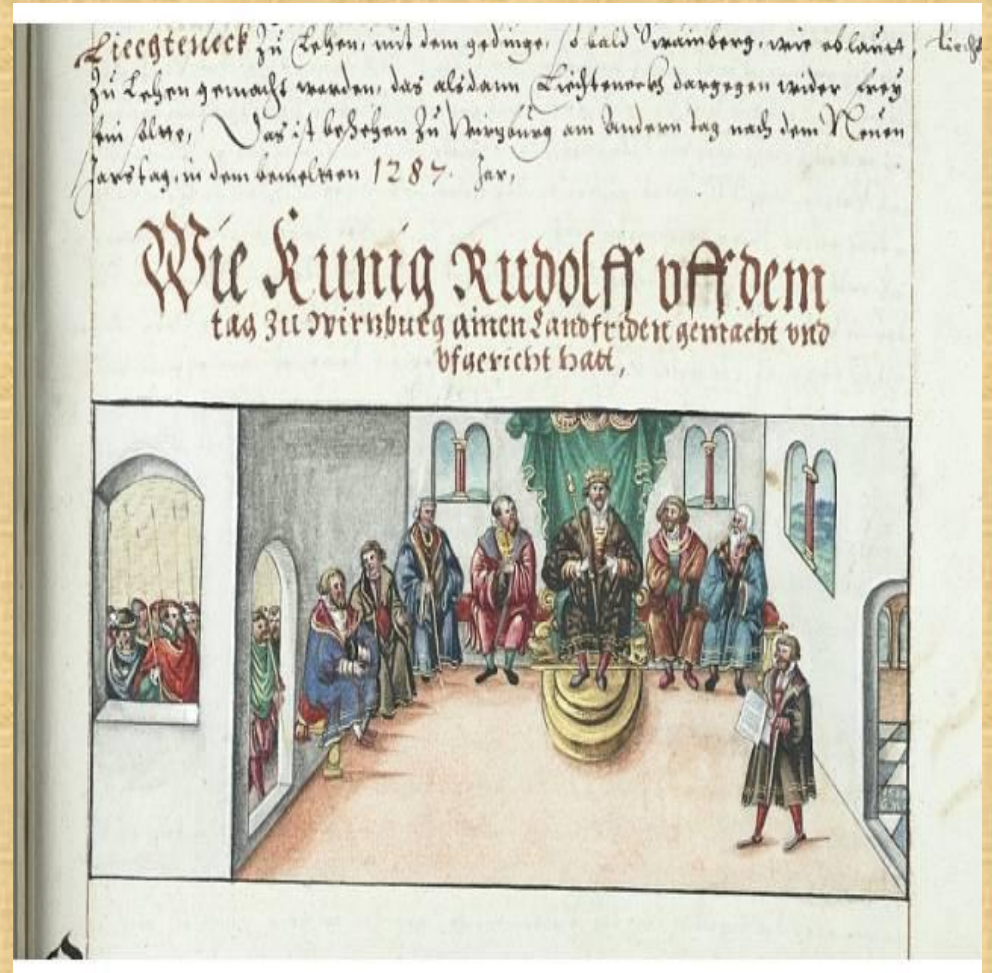 Liechteneck zu Lehen, mit dem gedinge, so bald Swainberg, wie ob lautt,
zu Lehen gemacht worden, das alsdann Liechteneckh dargegen wider frey
sein solte, Das ist beschehen zu Wirtzburg am andern tag nach dem Neuen
Jarstag, in dem bemeltten 1287. Jar,
Wie Kunig Rudolff vff dem
tag zu wirtzburg ainen Landfriden gemacht vnd
vfgericht hatt,